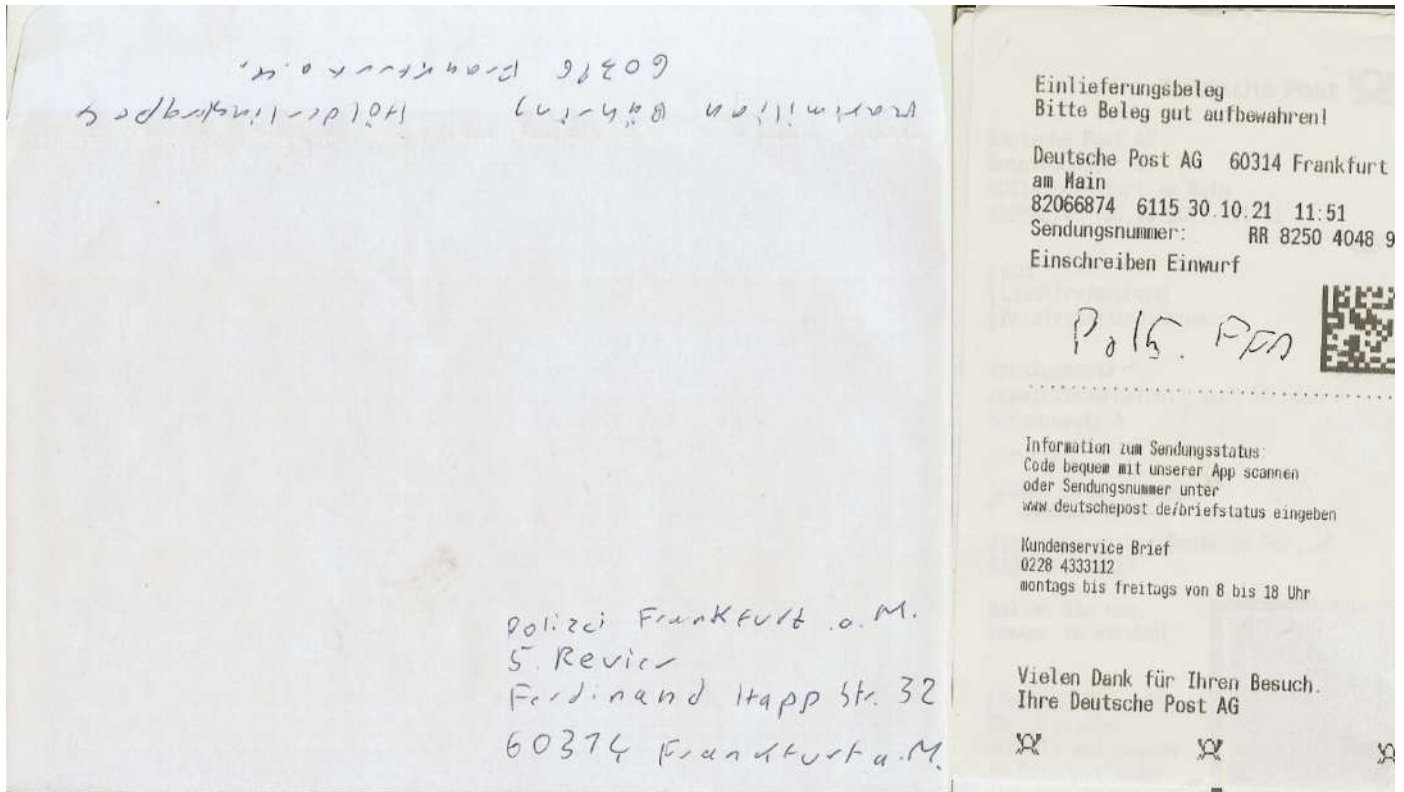 Maximilian Bähring Hölderlinstraße 4
60316 Frankfurt a.M.
Polizei Frankfurt a.M.
5. Revier
Ferdinand Happ Str. 32
60314 Frankfurt a.M.
Einlieferungsbeleg
Bitte Beleg gut aufbewahren!
Deutsche Post AG 60314 Frankfurt
am Main
82066874 6115 30.10.21 11:51
Sendungsnummer: RR 8250 4048 9
Einschreiben Einwurf
Information zum Sendungsstatus:
Code bequem mit unserer App scannen
oder Sendungsnummer unter
www.deutschepost.de/briefstatus eingeben
Kundenservice Brief
0228 4333112
montags bis freitags von 8 bis 18 Uhr
Vielen Dank für Ihren Besuch.
Ihre Deutsche Post AG